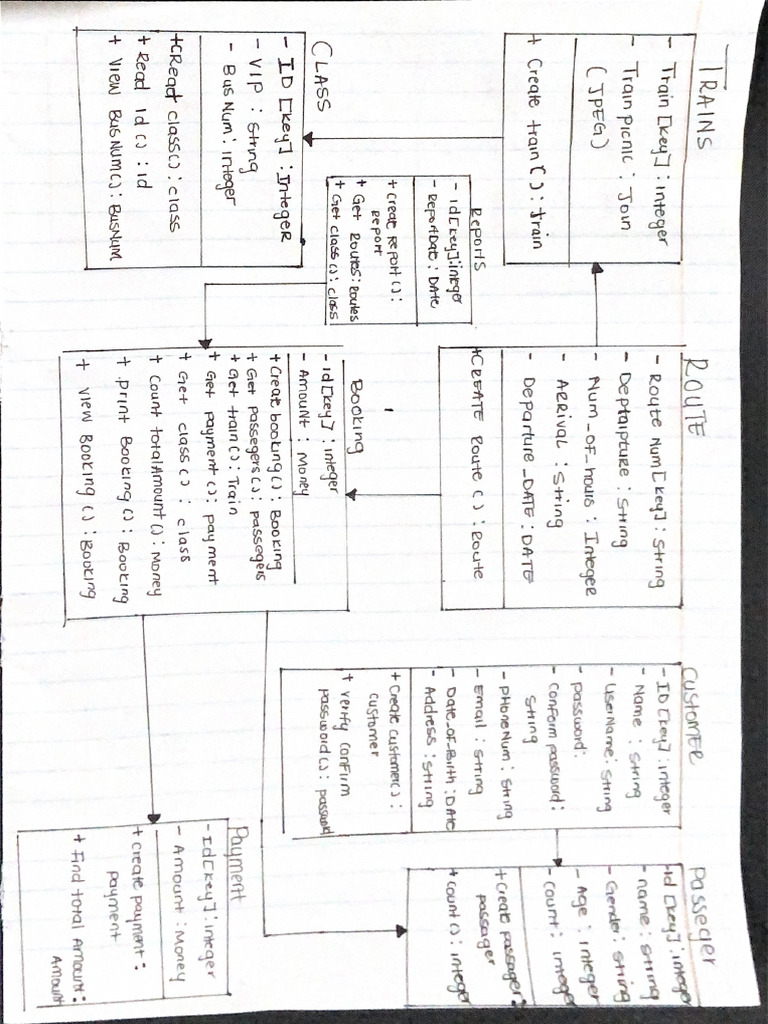 TRAINS
- Train [key] : integer
- Train picnic : Join
(JPEG)
+ Create train() : train
ROUTE
- Route Num[key] : String
- Deptaipture : String
- Num_of_hours : Integer
- ARRIVAL : String
- Departure_DATE : DATE
+CREATE Route () : Route
CUSTOMER
- ID [key] : integer
- Name : String
- UserName : String
- password :
- Conform password :
String
- PHoneNum : String
- Email : String
- Date_of_Birth : DATE
- Address : String
+ Create customer() :
customer
+ verify confirm
password() : password
Passeger
- Id [key] : integer
- name : string
- Gender : string
- Age : integer
- count : integer
+ Create passager :
passager
+ count () : integer
Reports
- id[key]:integer
- ReportDate : DAte
+ create Report () :
Report
+ Get Routes : Routes
+ Get class () : class
CLASS
- ID [key] : Integer
- VIP : String
- Bus Num : integer
+CReat class() : class
+ Read id () : id
+ View BusNum() : BusNUM
Booking
- id[key] : integer
- Amount : Money
+ Create booking () : Booking
+ Get passegers () : passegers
+ Get train () : Train
+ Get payment () : payment
+ Get class () : class
+ Count total Amount () : Money
+ print Booking () : Booking
+ View Booking () : Booking
Payment
- Id[key] : integer
- Amount : Money
+ create payment :
payment
+ Find total Amount :
Amount